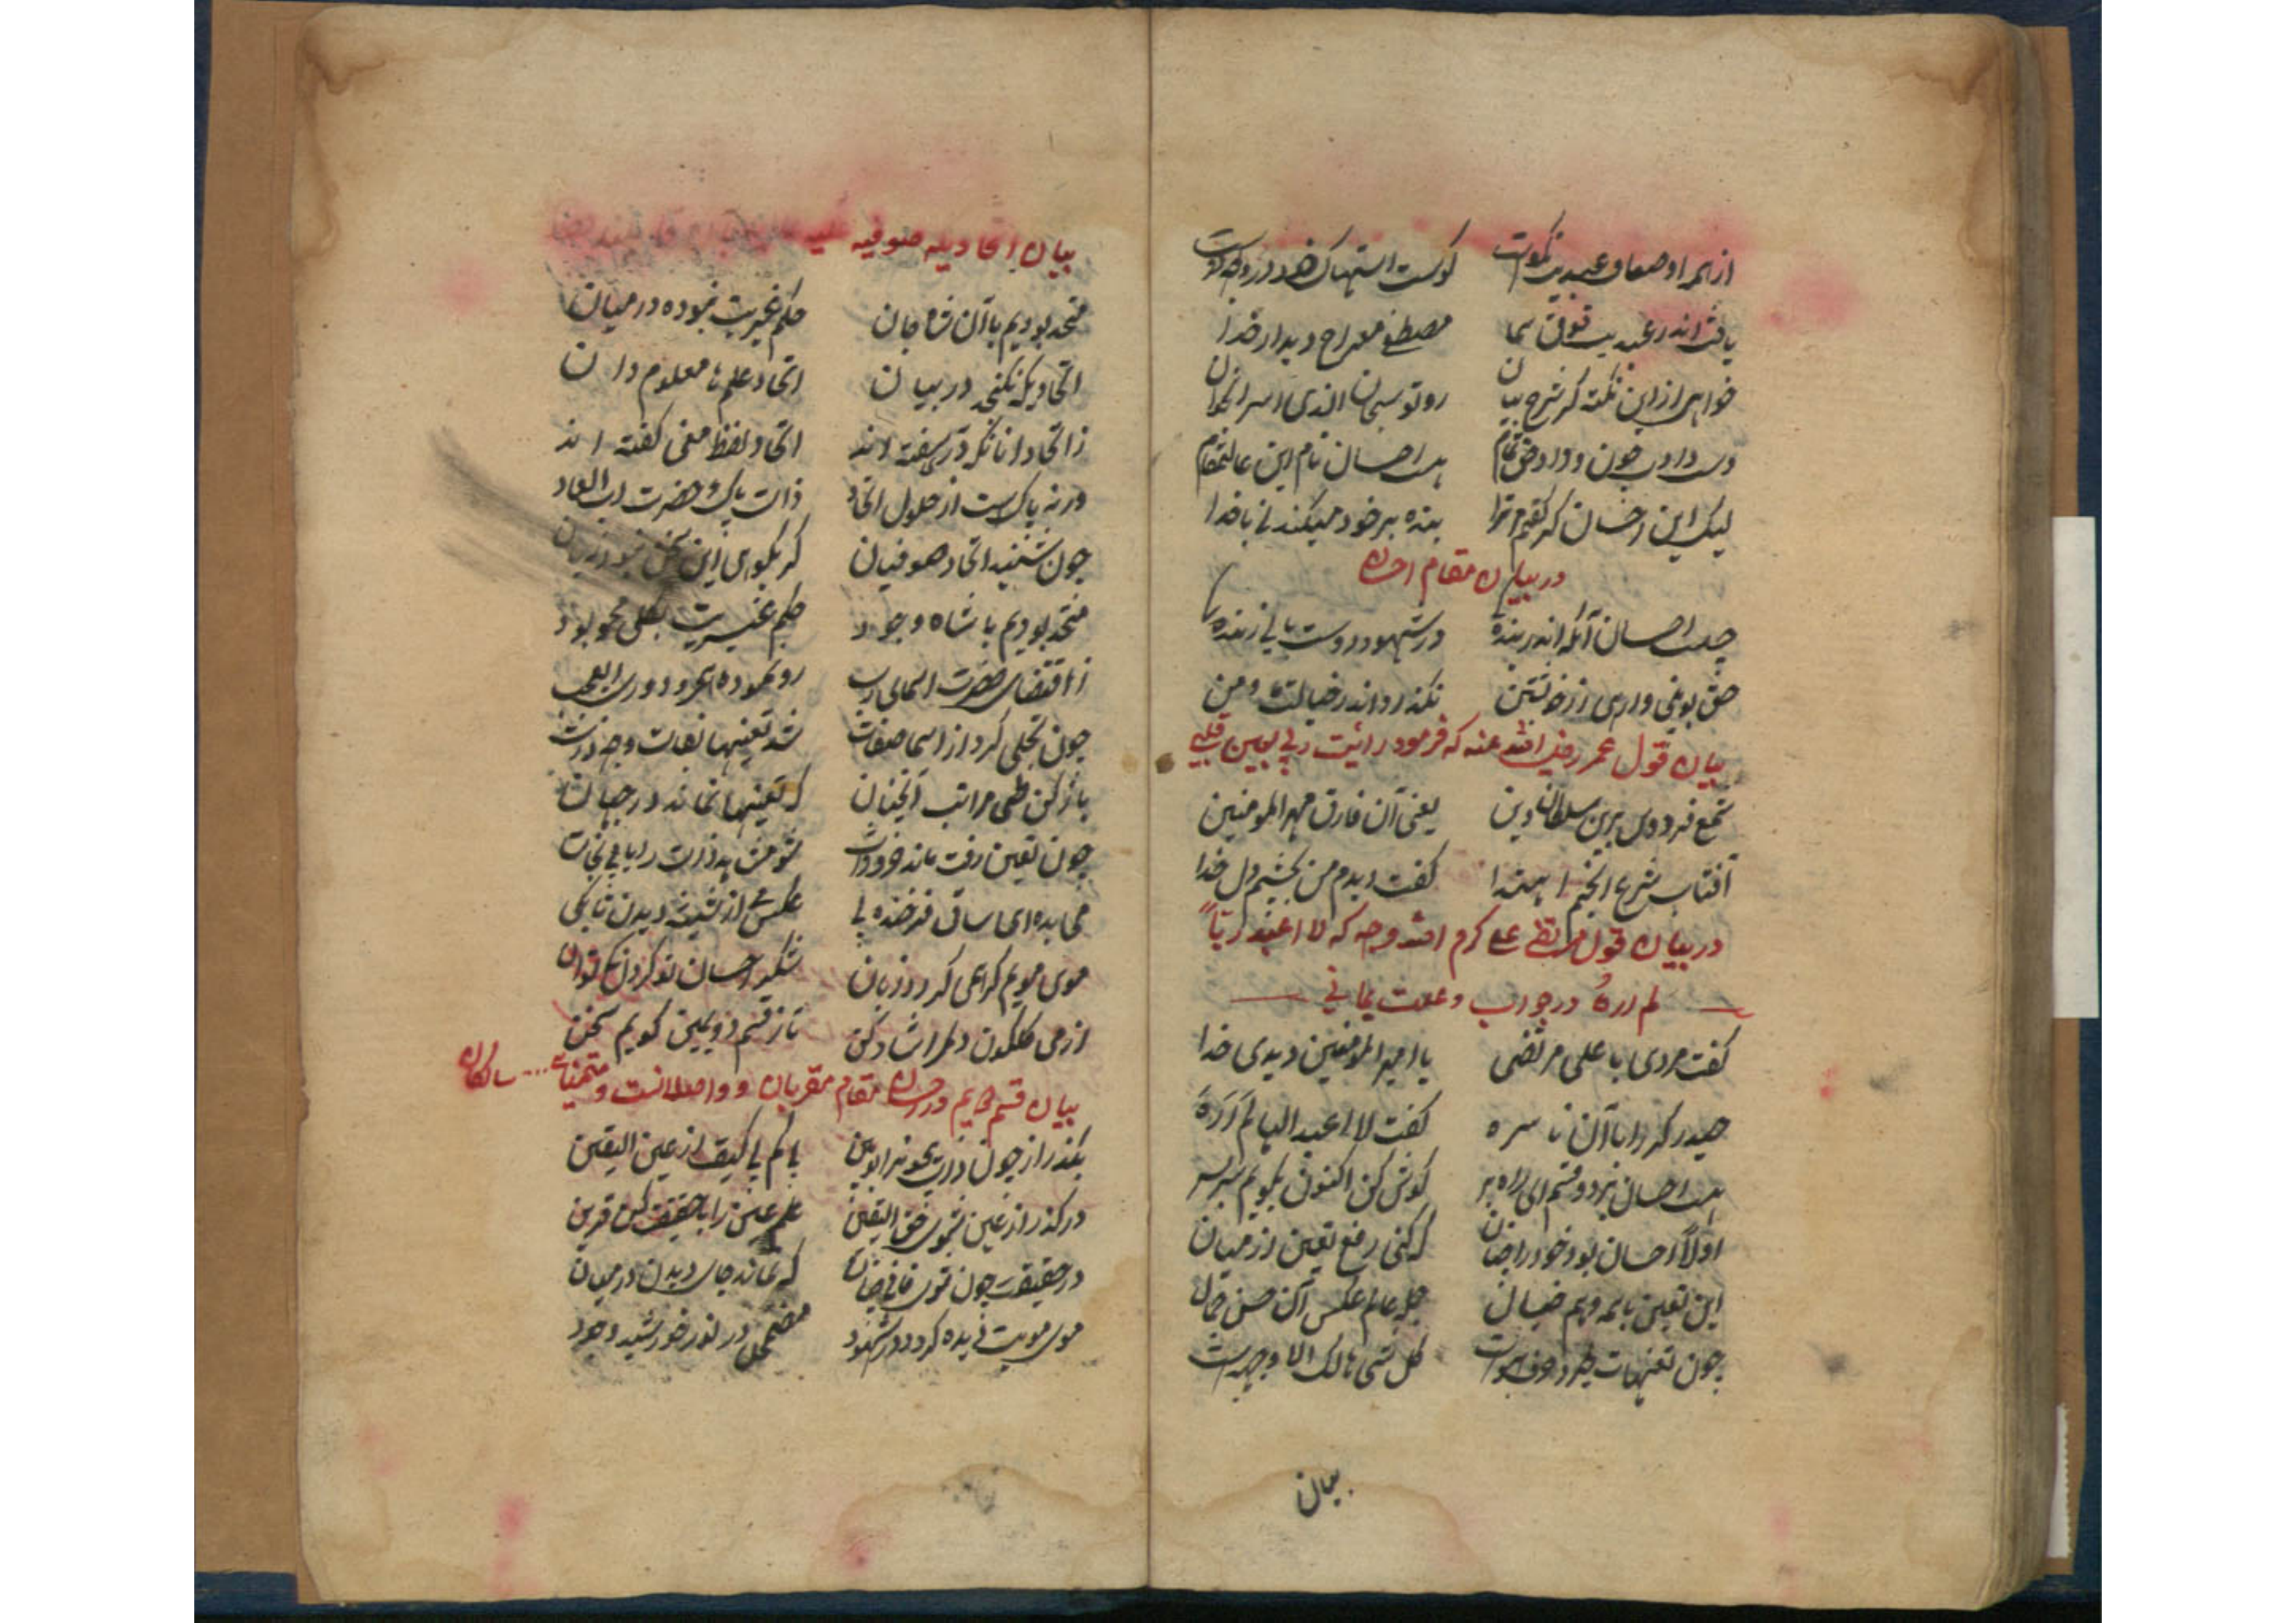 از همه اوصاف عبدیت نکوست کوست استهلاک خود در وجه دوست
یافت اندر عبدیت فوق سما مصطفی معراج و دیدار خدا
خواهی از این نکته کر شرح بیان رو تو سبحان الذی اسرا بخوان
هست احسان نام این عالیمقام
لیک این احسان که گفتم مر ترا بنده بر خود میکند نی با خدا
در بیان مقام احسان
چیست احسان آنکه اندر بندگی در شهود دوست باشی زندگی
نگذرد اندر خیالت ما و من
بیان قول عمر رضی الله عنه که فرمود رائیت ربی بعین قلبی
شمع فردوس برین سلطان دین یعنی آن فارق مهر المومنین
آفتاب شرع انجم اهتدا گفت دیدم من بچشم دل خدا
در بیان قول مرتضی علی کرم الله وجه که لا اعبد ربا
لم اره در جواب
گفت مردی با علی مرتضی یا امیر المومنین دیدی خدا
حیدر کرار با آن ناسره گفت لا اعبد الها لم اره
هست احسان بر دو قسم ای راه بر گوش کن اکنون بگویم سر بسر
اولا احسان بود خود را چنان که کنی رفع تعین از میان
این تعین با همه وهم خیال جمله عالم عکس آن حسن جمال
چون تعینهات کل شی هالک الا وجهه است
بیان
بیان اتحادیه صوفیه علیه
متحد بودیم با آن شاه جان حکم غیریت نبوده در میان
اتحادیکه نگنجد در بیان اتحاد علم با معلوم دان
ز اتحاد آنانکه در سفته اند اتحاد لفظ معنی گفته اند
ورنه پاکست از حلول اتحاد ذات پاک حضرت رب العباد
چون شنید اتحاد صوفیان گر بگوی این سخن نبود زیان
متحد بودیم با شاه وجود حکم غیریت بکلی محو بود
ز اقتضای حضرت اسمای رب رو نموده هجر و دوری العجب
چون تجلی کرد از اسما صفات شد تعینها نقاب وجه ذات
باز کن طی مراتب آنچنان که تعینها نماند در جهان
چون تعین رفت ماند خود ذات
می بده ای ساقی فرخنده پی عکس می از شیشه دیدن تا بکی
موی مویم گر همی گردد زبان شکر احسان تو کردن کی توان
از می گلگون دلم را شاد کن تا ز قسم دویمین گویم سخن
بیان قسم دویم در احسان مقام مقربان و واصلانست و متحنیات .... سالکان
بگذر از چون ذات بیچونرا ببین با کم با کیف از عین الیقین
در گذر از عین شوی حق الیقین علم عین را با حقیقت کن قرین
در حقیقت چون توی فانی چنان که نماند جای دیدن در میان
موی مویت دیده گردد در شهود مضمحل در نور خورشید وجود